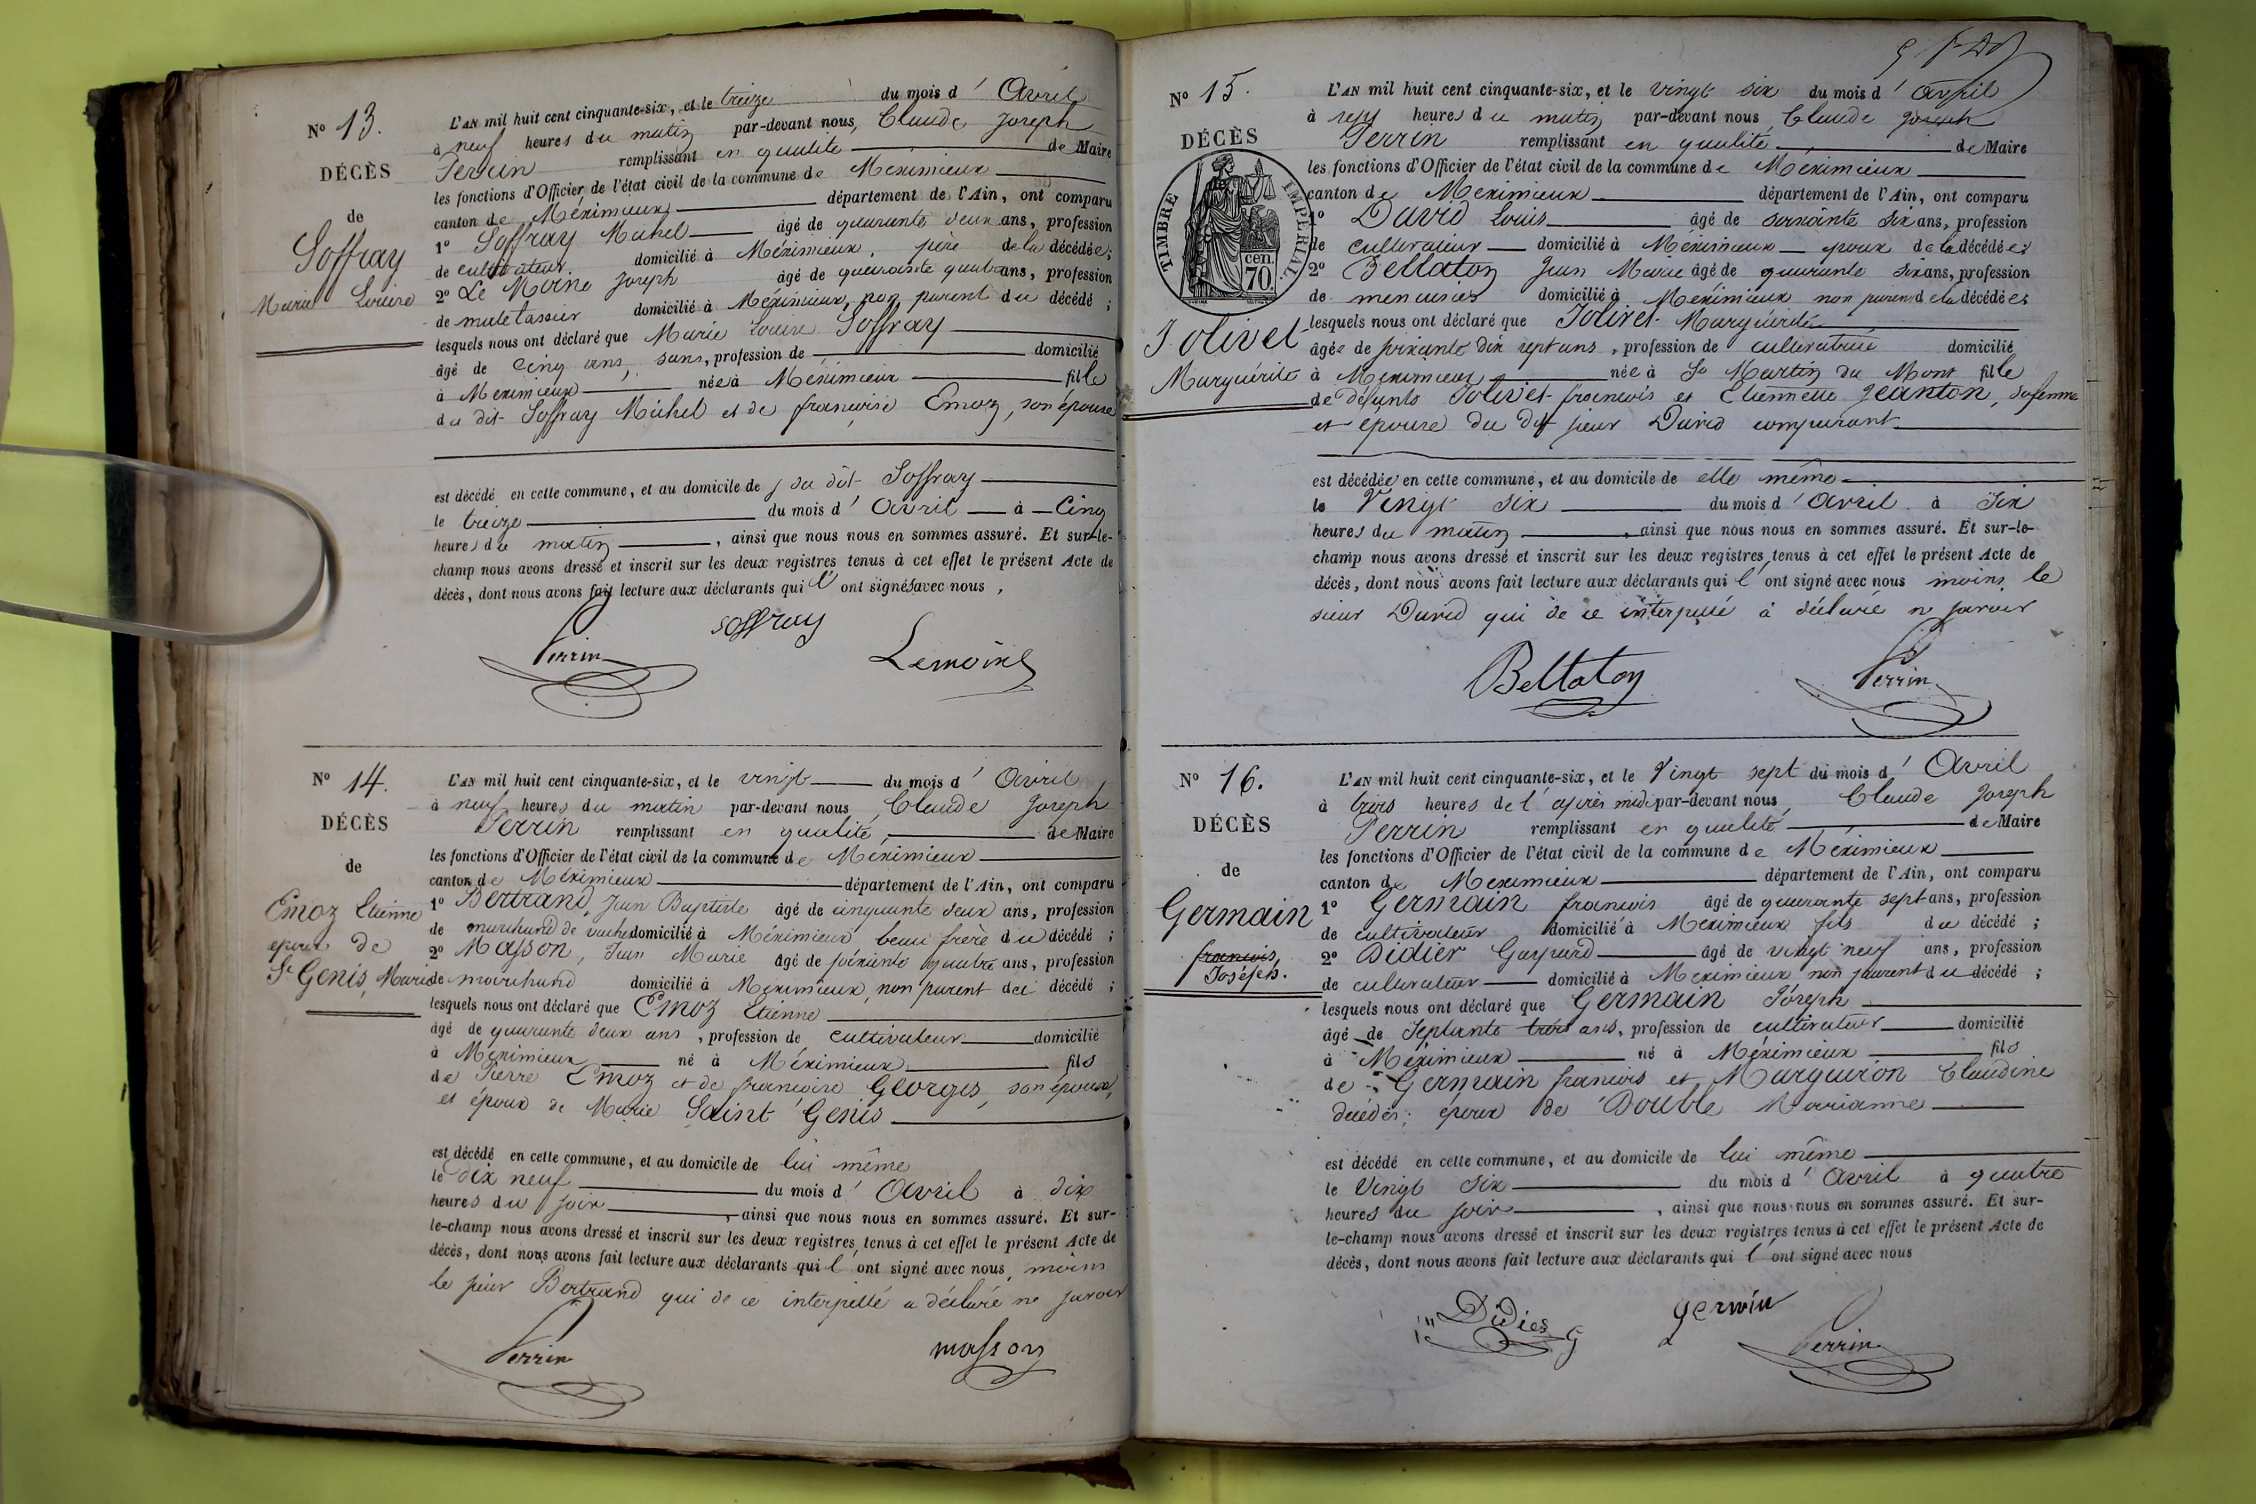 N° 13.
DÉCÈS
de
Soffray
Marie Louise
L'AN mil huit cent cinquante-six, et le treize du mois d' Avril
à neuf heures du matin par-devant nous, Claude Joseph
Perrin remplissant en qualité de Maire
les fonctions d'Officier de l'état civil de la commune de Meximieux
canton de Méximieux département de l'Ain, ont comparu
1° Soffray Michel âgé de quarante deux ans, profession
de cultivateur domicilié à Méximieux, père de la décédée;
2° Le Moine Joseph âgé de quarante quatre ans, profession
de muletassier domicilié à Méximieux, non parent du décédé;
lesquels nous ont déclaré que Marie Louise Soffray
âgé de cinq ans, sans, profession de domicilié
à Meximieux née à Méximieux fille
du dit Soffray Michel et de françoise Emoz, son épouse
est décédé en cette commune, et au domicile de du dit Soffray
le treize du mois d' Avril à Cinq
heures du matin, ainsi que nous nous en sommes assuré. Et sur-le-
champ nous avons dressé et inscrit sur les deux registres tenus à cet effet le présent Acte de
décès, dont nous avons fait lecture aux déclarants qui l' ont signés avec nous,
Perrin soffray Lemoine
N° 14.
DÉCÈS
de
Emoz Etienne
époux de
St Genis, Marie
L'AN mil huit cent cinquante-six, et le vingt du mois d' Avril
à neuf heures du matin par-devant nous, Claude Joseph
Perrin remplissant en qualité, de Maire
les fonctions d'Officier de l'état civil de la commune de Méximieux
canton de Méximieux département de l'Ain, ont comparu
1° Bertrand, Jean Baptiste âgé de cinquante deux ans, profession
de marchand de vaches domicilié à Méximieux, beau frère du décédé;
2° Masson, Jean Marie âgé de soixante quatre ans, profession
de marchand domicilié à Meximieux, non parent du décédé;
lesquels nous ont déclaré que Emoz Etienne
âgé de quarante deux ans, profession de cultivateur domicilié
à Méximieux né à Méximieux fils
de Pierre Emoz et de françoise Georges, son épouse,
et époux de Marie Saint Genis
est décédé en cette commune, et au domicile de lui même
le dix neuf du mois d' Avril à dix
heures du soir, ainsi que nous nous en sommes assuré. Et sur-
le-champ nous avons dressé et inscrit sur les deux registres tenus à cet effet le présent Acte de
décès, dont nous avons fait lecture aux déclarants qui l' ont signé avec nous, moins
le sieur Bertrand qui de ce interpellé a déclaré ne savoir
Perrin masson
N° 15.
DÉCÈS
TIMBRE IMPÉRIAL
cen.
70.
Jolivet
Marguérite
L'AN mil huit cent cinquante-six, et le vingt six du mois d' Avril
à sept heures du matin par-devant nous, Claude Joseph
Perrin remplissant en qualité de Maire
les fonctions d'Officier de l'état civil de la commune de Méximieux
canton de Meximieux département de l'Ain, ont comparu
1° David Louis âgé de soixante six ans, profession
de cultivateur domicilié à Méximieux époux de la décédée;
2° Bellaton Jean Marie âgé de quarante six ans, profession
de menuisier domicilié à Meximieux non parent de la décédée;
lesquels nous ont déclaré que Jolivet Marguérite
âgée de soixante dix sept ans, profession de cultivatrice domicilié
à Meximieux née à St Martin du Mont fille
de défunts Jolivet françois et Etiennette Jeanton, sa femme
et épouse du dit sieur David comparant
est décédée en cette commune, et au domicile de elle même
le Vingt six du mois d' Avril à Six
heures du matin, ainsi que nous nous en sommes assuré. Et sur-le-
champ nous avons dressé et inscrit sur les deux registres tenus à cet effet le présent Acte de
décès, dont nous avons fait lecture aux déclarants qui l' ont signé avec nous moins le
sieur David qui de ce interpellé à déclaré ne savoir
Bellaton Perrin
N° 16.
DÉCÈS
de
Germain
françois
Joseph.
L'AN mil huit cent cinquante-six, et le Vingt sept du mois d' Avril
à trois heures de l'après midi par-devant nous, Claude Joseph
Perrin remplissant en qualité de Maire
les fonctions d'Officier de l'état civil de la commune de Méximieux
canton de Meximieux département de l'Ain, ont comparu
1° Germain françois âgé de quarante sept ans, profession
de cultivateur domicilié à Meximieux fils du décédé;
2° Didier Gaspard âgé de vingt neuf ans, profession
de cultivateur domicilié à Meximieux non parent du décédé;
lesquels nous ont déclaré que Germain Joseph
âgé de Septante trois ans, profession de cultivateur domicilié
à Méximieux né à Méximieux fils
de Germain françois et Marguiron Claudine
décédés; époux de Double Marianne
est décédé en cette commune, et au domicile de lui même
le Vingt six du mois d' Avril à quatre
heures du soir, ainsi que nous nous en sommes assuré. Et sur-
le-champ nous avons dressé et inscrit sur les deux registres tenus à cet effet le présent Acte de
décès, dont nous avons fait lecture aux déclarants qui l' ont signé avec nous
Didier G germin Perrin